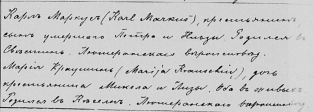 Карлъ Маркусъ (Karl Markus), крестьянинъ,
сынъ умершаго Петра и Родился въ
Лютеранскаго вѣроисповѣд.
Марія Краупинъ (Marija), дочь
крестьянина Микеля и Лизы. Оба въ живыхъ
Родился въ Лютеранскаго вѣроисповѣд.